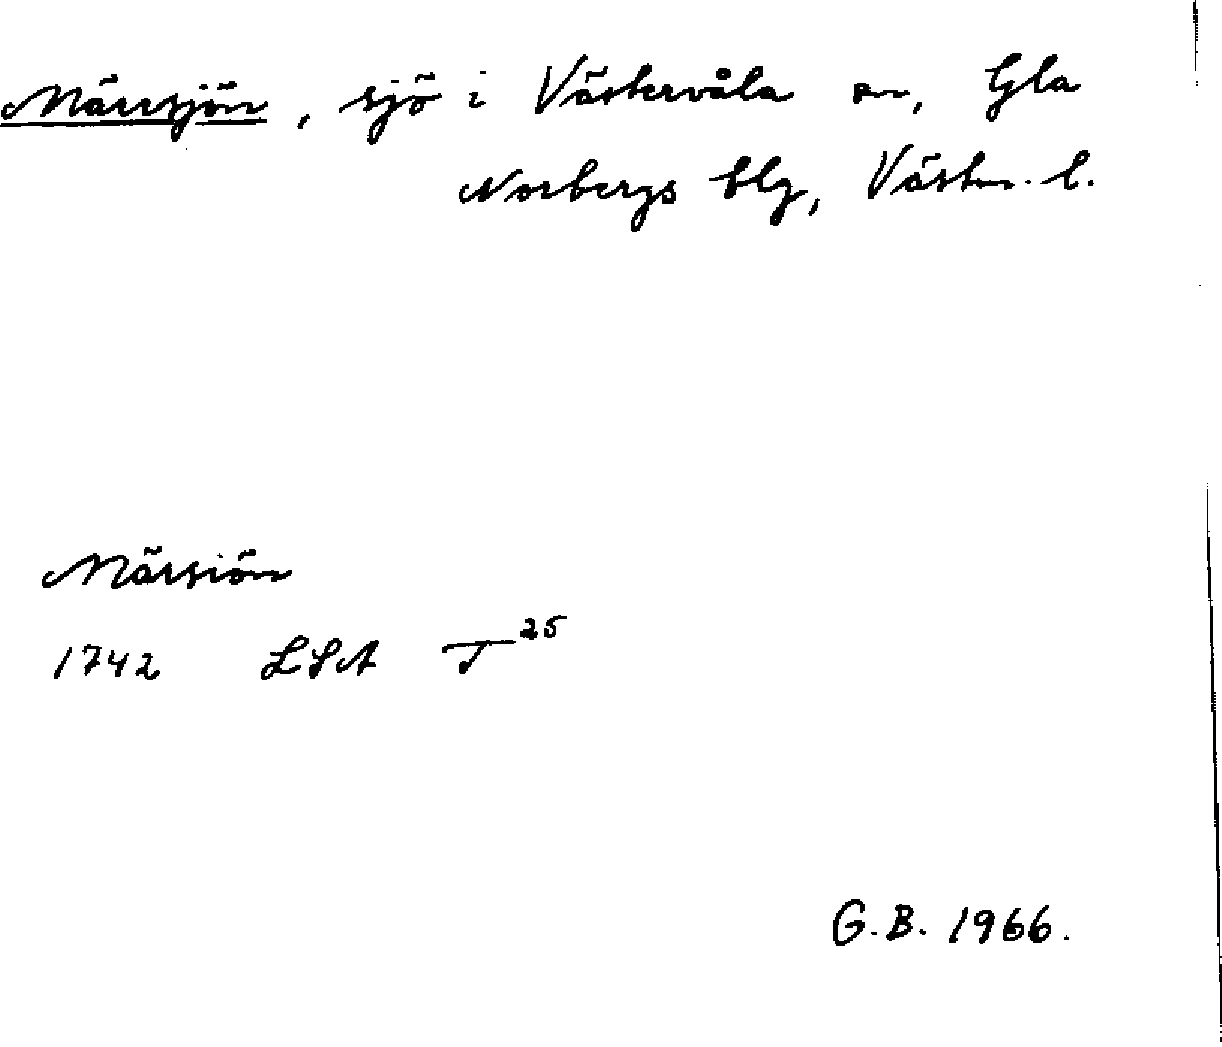 Märrsjön, sjö i Västervåla sn, Gla
Norbergs blg, Västm. l.
Märsiön
1742 LSA T 25
G.B. 1966.